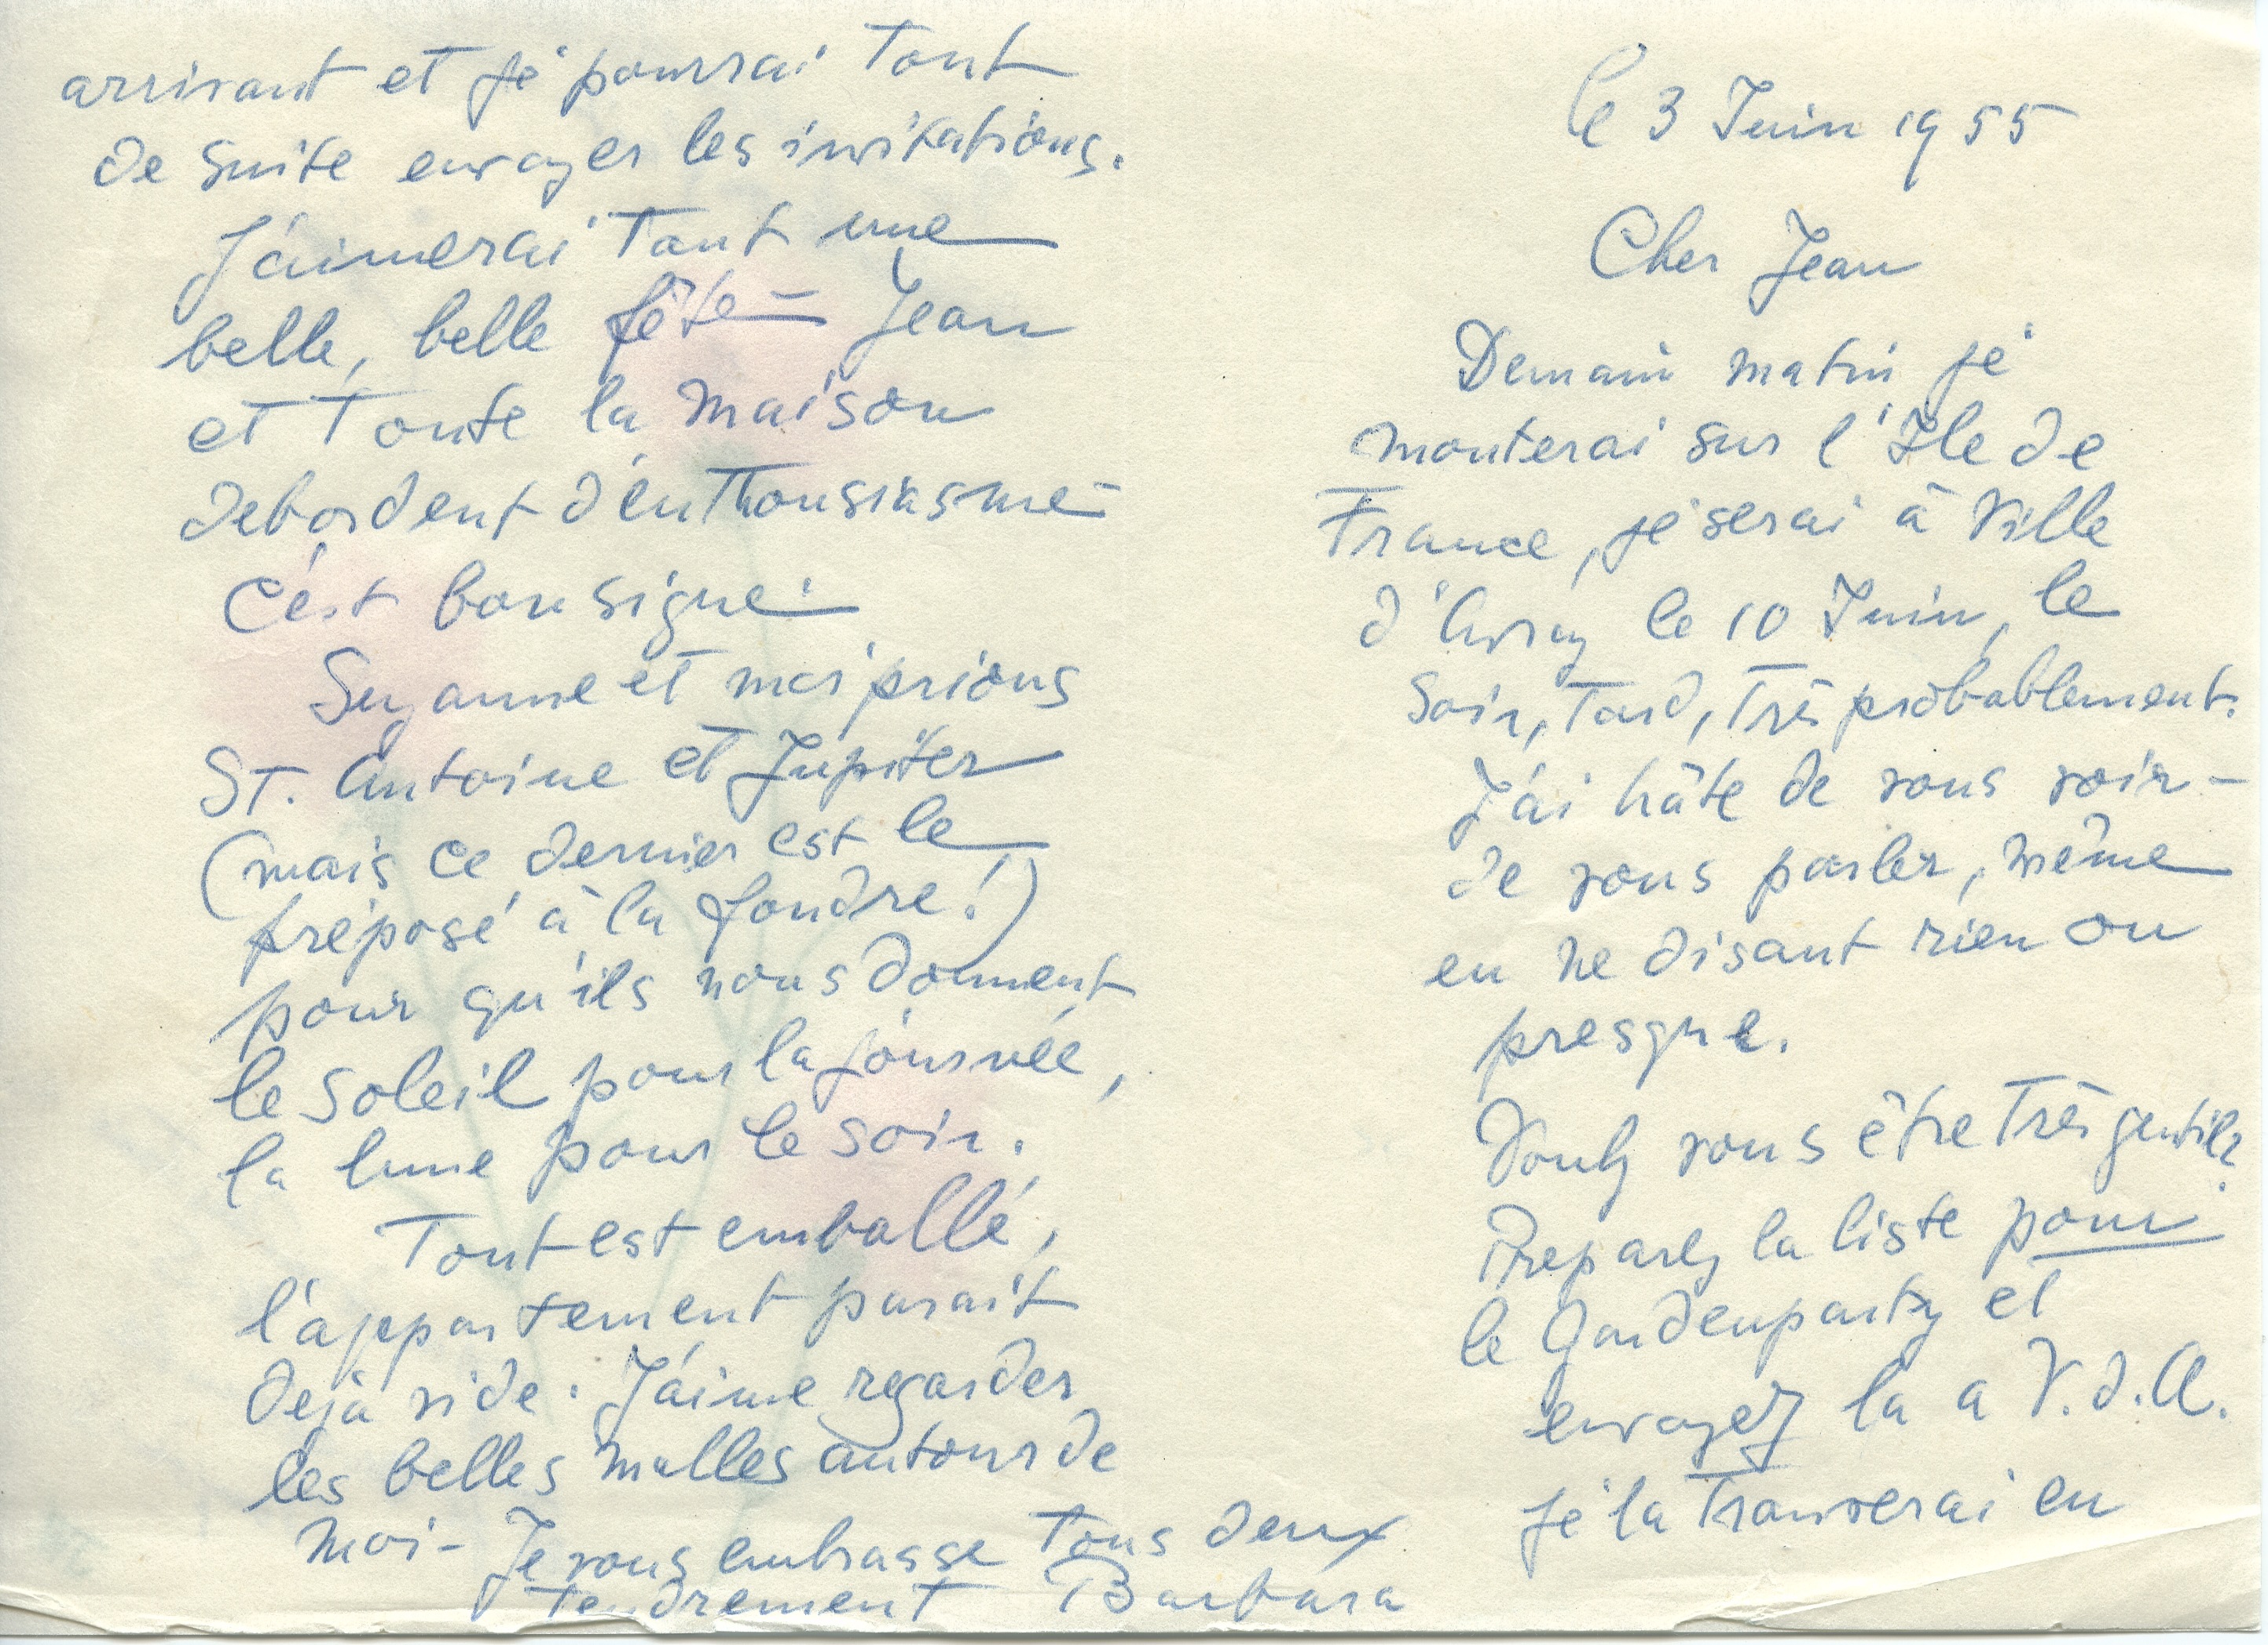 le 3 Juin 1955
Cher Jean
Demain matin je
monterai sur l'Ile de
France, je serai à Ville
d'Avray le 10 Juin, le
soir, tard, très probablement.
J'ai hâte de vous voir -
de vous parler, même
en ne disant rien ou
presque.
Voulez vous être très gentil?
Preparez la liste pour
le Gardenparty et
envoyez la a V.d.A.
je la trouverai en
arrivant et je pourrai tout
de suite envoyer les invitations.
J'aimerai tant une
belle, belle fête - Jean
et toute la maison
debordent d'enthousiasme -
C'est bon signe.
Suzanne et moi prions
St. Antoine et Jupiter
(mais ce dernier est le
préposé à la foudre!)
pour qu'ils nous donnent
le soleil pour la journée,
la lune pour le soir.
Tout est emballé,
l'appartement parait
dejà vide. J'aime regarder
les belles malles autour de
moi - Je vous embrasse tous deux
tendrement Barbara